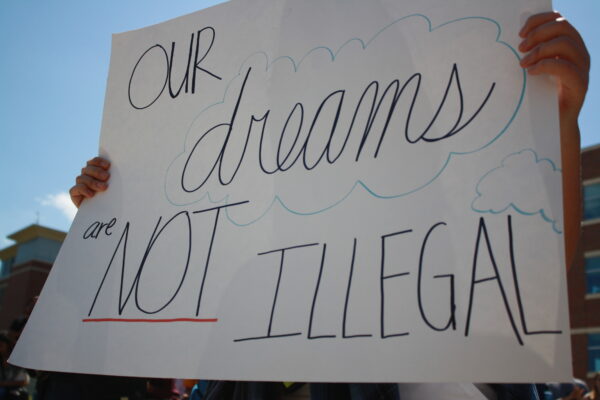 OUR
dreams
are NOT ILLEGAL